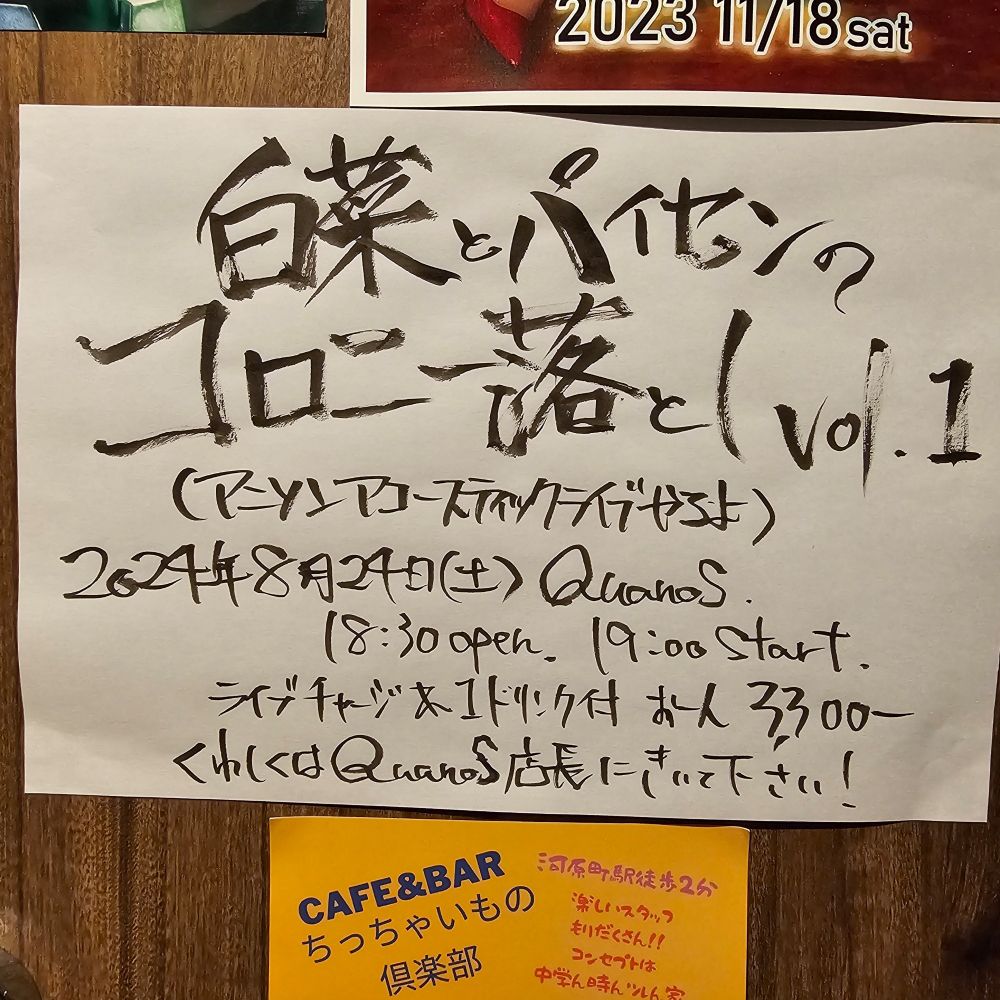 2023 11/18 sat
白菜とパイセンの
コロニー落とし vol.1
(アニソンアコースティックライブやるよ)
2024年8月24日(土) QuanoS.
18:30 open. 19:00 Start.
ライブチャージ 1ドリンク付 お一人 3,300-
くわしくはQuanoS店長にきいて下さい!
CAFE&BAR
ちっちゃいもの
倶楽部
河原町駅徒歩2分
楽しいスタッフ
もりだくさん!!
コンセプトは
中学ん時んツレん家